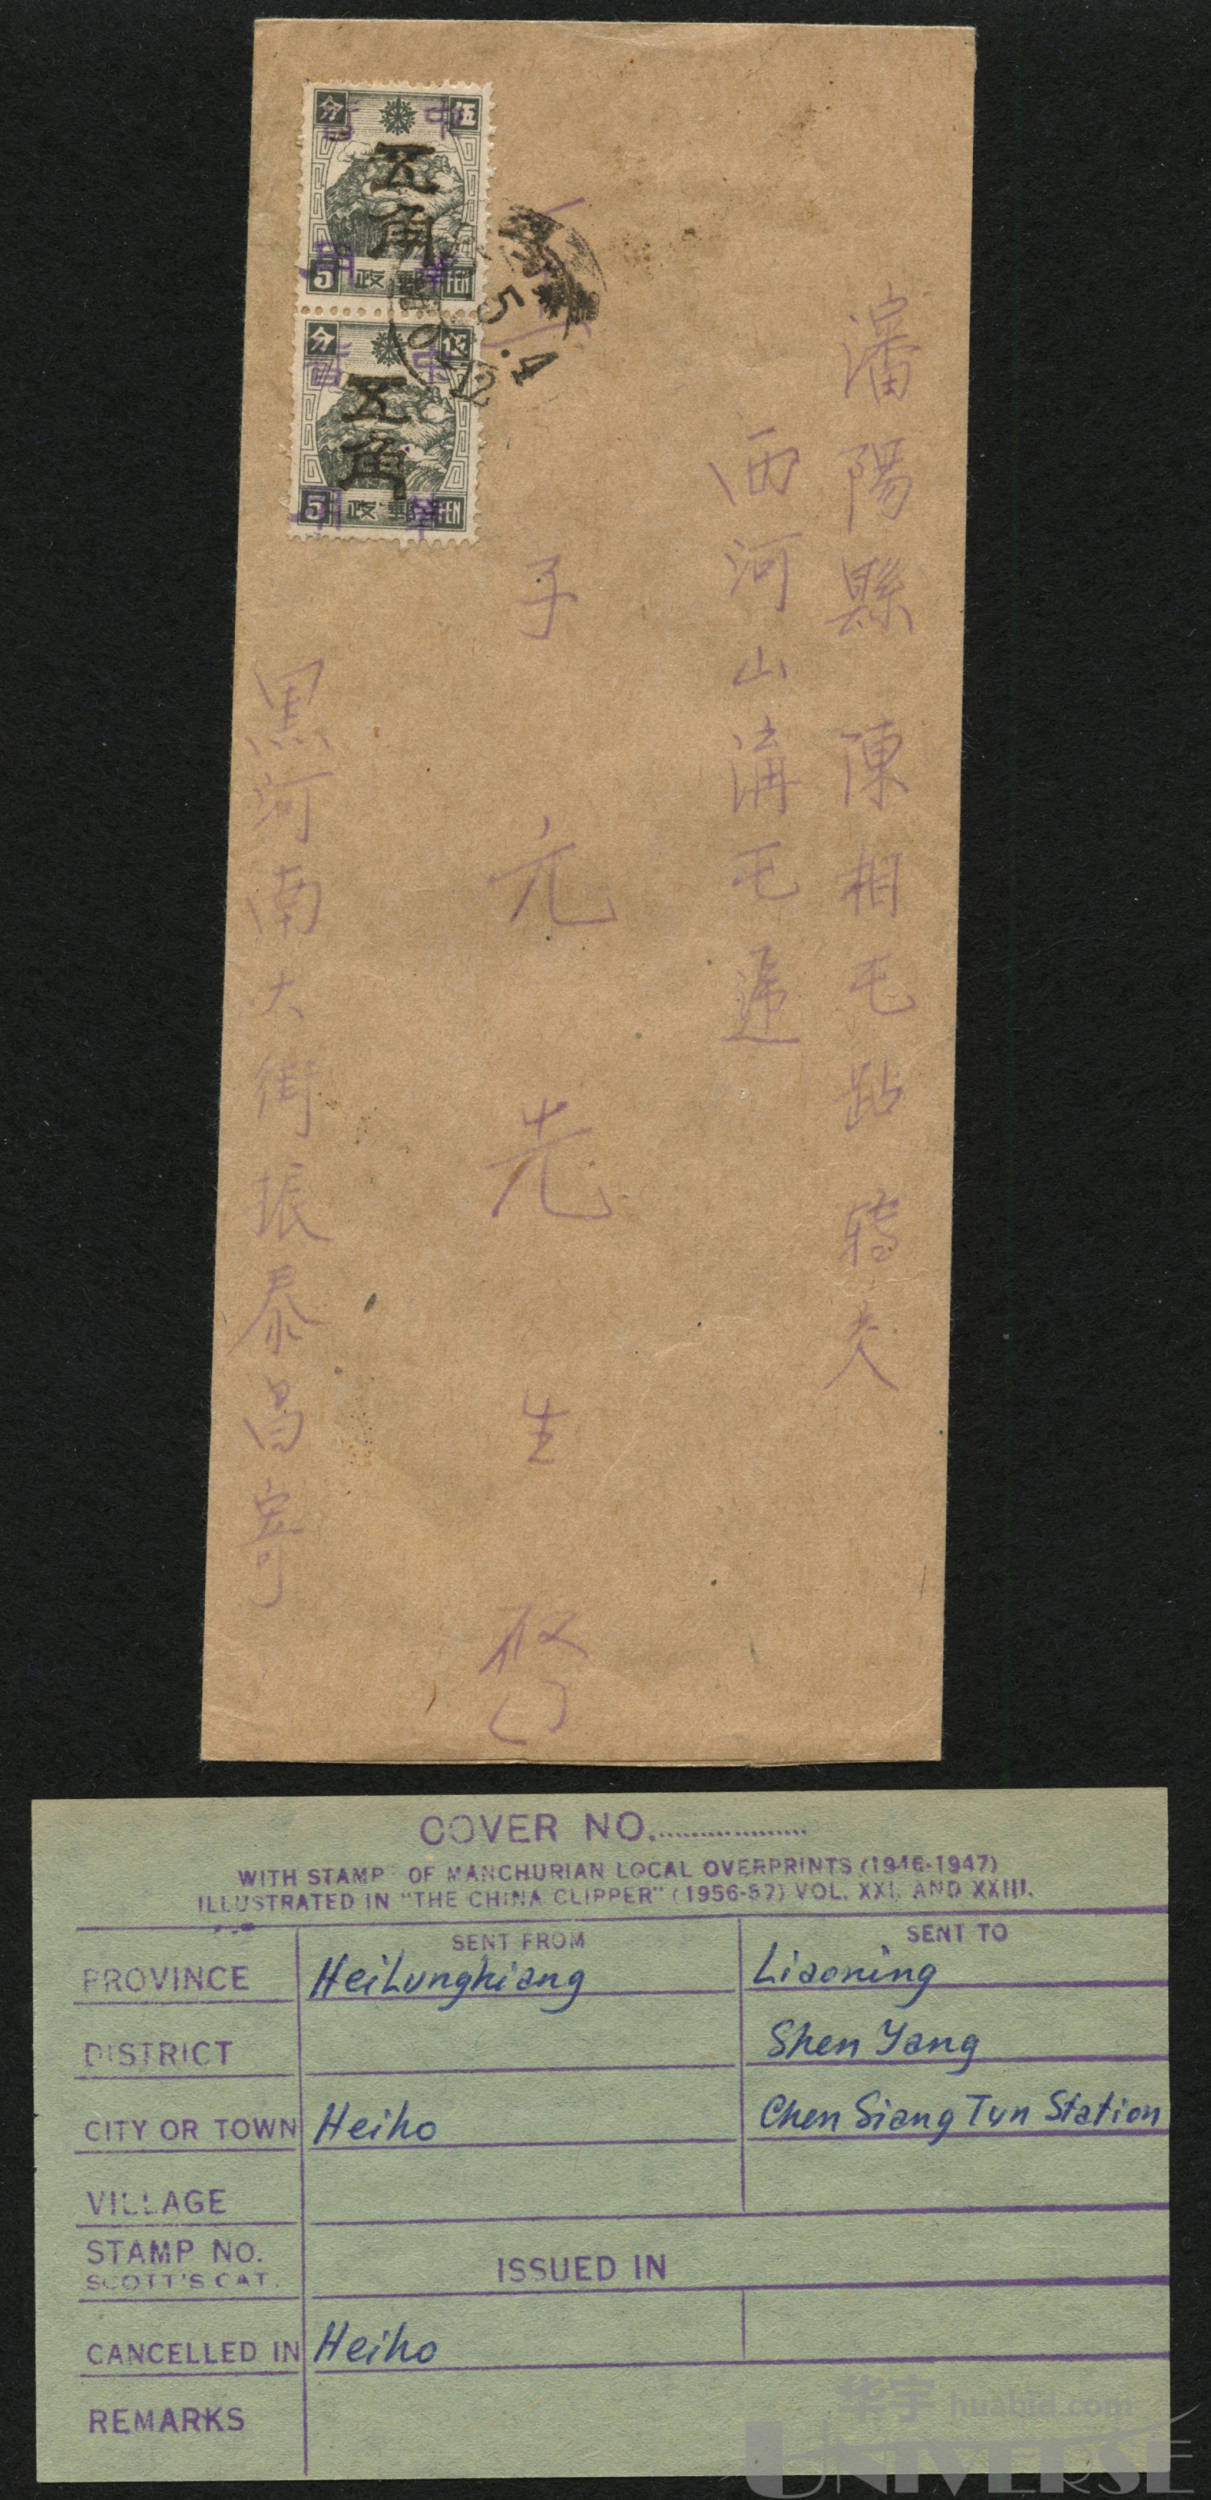 分 伍
中 暫
五角
華 用
5 政郵 FEN
分 伍
中 暫
五角
華 用
5 政郵 FEN
5.4
12
瀋陽縣陳相屯站
西河山溝屯
子元先生啓
黑河南大街振泰昌寄
COVER NO.
WITH STAMP OF MANCHURIAN LOCAL OVERPRINTS (1946-1947)
ILLUSTRATED IN "THE CHINA CLIPPER" (1956-57) VOL. XXI, AND XXIII.
SENT FROM SENT TO
PROVINCE HeiLungkiang Liaoning
DISTRICT Shen Yang
CITY OR TOWN Heiho Chen Siang Tun Station
VILLAGE
STAMP NO.
SCOTT'S CAT. ISSUED IN
CANCELLED IN Heiho
REMARKS
华宇 huabid.com
UNIVERSE